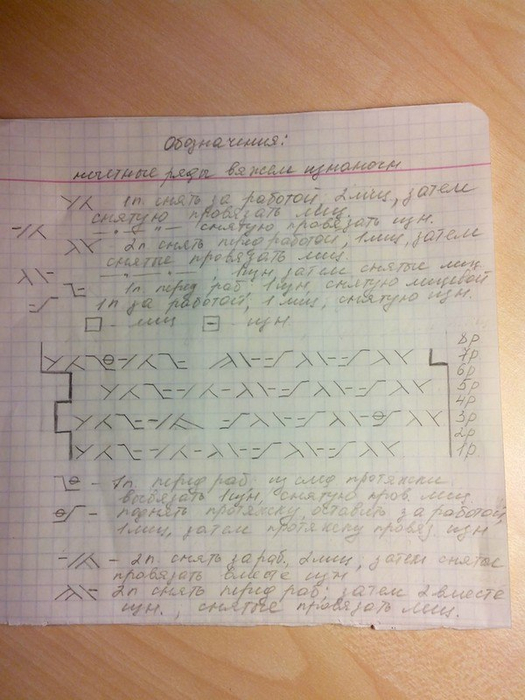 Обозначения:
нечетные ряды вяжем изнаночн
1п. снять за работой, 2 лиц, затем
снятую провязать лиц.
— " — " — снятую провязать изн.
2п снять перед работой, 1 лиц, затем
снятые провязать лиц.
— " — " —, 1 изн, затем снятые лиц.
1п. перед раб, 1 изн, снятую лицевой
1п за работой, 1 лиц, снятую изн.
- лиц - изн
8р
7р
6р
5р
4р
3р
2р
1р.
- 1п. перед раб. из след протяжки
вывязать 1 изн, снятую пров. лиц
- поднять протяжку, оставить за работой,
1 лиц, затем протяжку провяз. изн
- 2п. снять за раб., 2 лиц, затем снятые
провязать вместе изн
- 2п снять перед раб; затем 2 вместе
изн., снятые провязать лиц.